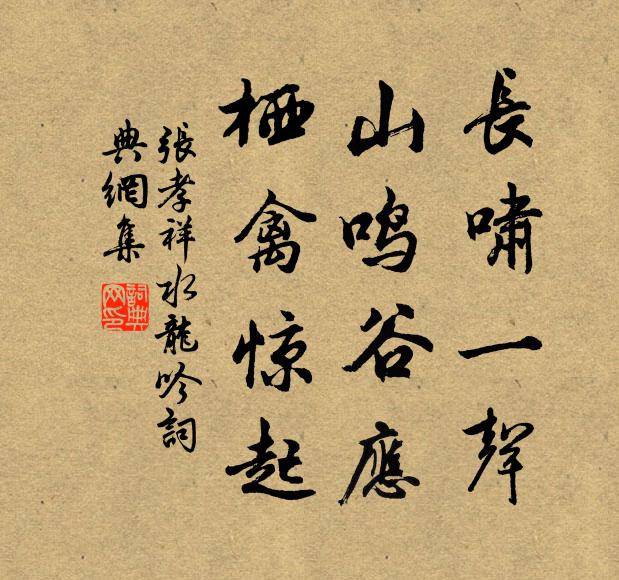 長啸一聲
山鸣谷應
栖禽惊起
張孝祥水龍吟詞
典網集
詞典网印